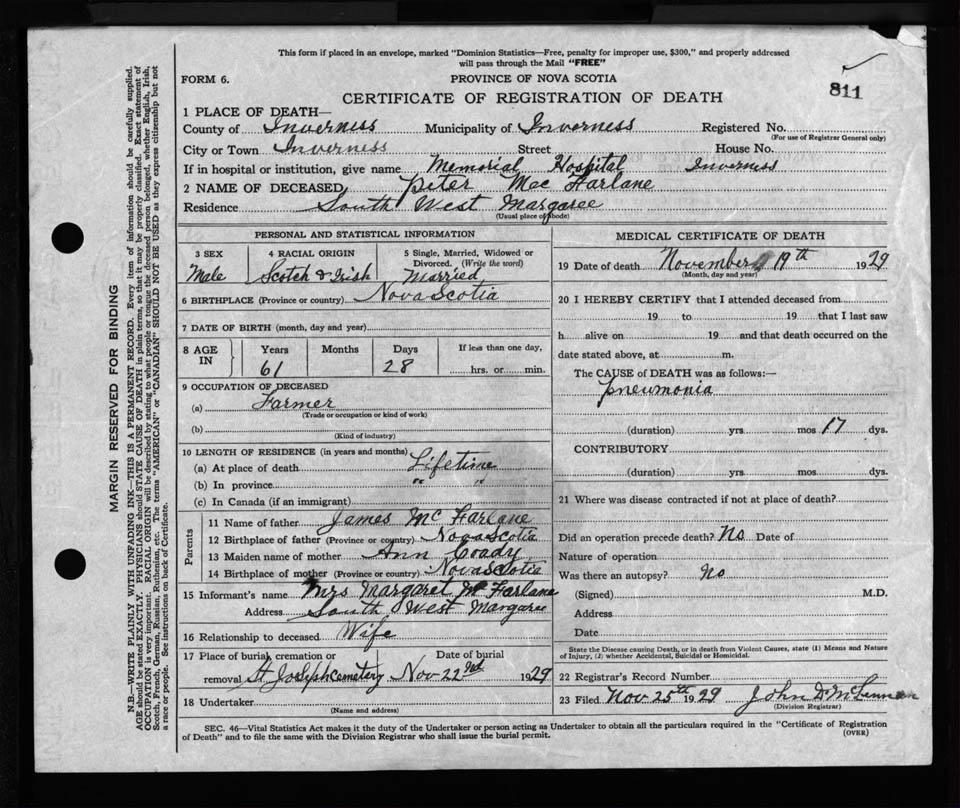 This form if placed in an envelope, marked "Dominion Statistics—Free, penalty for improper use, $300," and properly addressed
will pass through the Mail "FREE"
FORM 6.
PROVINCE OF NOVA SCOTIA
811
CERTIFICATE OF REGISTRATION OF DEATH
1 PLACE OF DEATH—
County of Inverness Municipality of Inverness Registered No.
(For use of Registrar General only)
City or Town Inverness Street House No.
If in hospital or institution, give name Memorial Hospital Inverness
2 NAME OF DECEASED Peter Mac Farlane
Residence South West Margaree
(Usual place of abode)
PERSONAL AND STATISTICAL INFORMATION
3 SEX 4 RACIAL ORIGIN 5 Single, Married, Widowed or
Divorced. (Write the word)
Male Scotch & Irish Married
6 BIRTHPLACE (Province or country) Nova Scotia
7 DATE OF BIRTH (month, day and year)
8 AGE IN Years Months Days If less than one day,
61 28 hrs. or min.
9 OCCUPATION OF DECEASED
(a) Farmer
(Trade or occupation or kind of work)
(b)
(Kind of industry)
10 LENGTH OF RESIDENCE (in years and months)
(a) At place of death Lifetime
(b) In province " "
(c) In Canada (if an immigrant)
Parents
11 Name of father James Mc Farlane
12 Birthplace of father (Province or country) Nova Scotia
13 Maiden name of mother Ann Coady
14 Birthplace of mother (Province or country) Nova Scotia
15 Informant's name Mrs Margaret Mc Farlane
Address South West Margaree
16 Relationship to deceased Wife
17 Place of burial, cremation or Date of burial
removal St Joseph cemetery Nov 22nd 1929
18 Undertaker
(Name and address)
MEDICAL CERTIFICATE OF DEATH
19 Date of death November 19th 1929
(Month, day and year)
20 I HEREBY CERTIFY that I attended deceased from
19 to 19 that I last saw
h alive on 19 and that death occurred on the
date stated above, at m.
The CAUSE of DEATH was as follows:—
Pneumonia
(duration) yrs mos 17 dys.
CONTRIBUTORY
(duration) yrs mos dys.
21 Where was disease contracted if not at place of death?
Did an operation precede death? No Date of
Nature of operation
Was there an autopsy? No
(Signed) M.D.
Address
Date
State the Disease causing Death, or in death from Violent Causes, state (1) Means and Nature
of Injury, (2) whether Accidental, Suicidal or Homicidal.
22 Registrar's Record Number
23 Filed Nov 25th 1929 John D McLennan
(Division Registrar)
SEC. 46—Vital Statistics Act makes it the duty of the Undertaker or person acting as Undertaker to obtain all the particulars required in the "Certificate of Registration
of Death" and to file the same with the Division Registrar who shall issue the burial permit.
(OVER)
MARGIN RESERVED FOR BINDING
N.B.—WRITE PLAINLY WITH UNFADING INK—THIS IS A PERMANENT RECORD. Every item of information should be carefully supplied.
AGE should be stated EXACTLY. PHYSICIANS should STATE CAUSE OF DEATH in plain terms, so that it may be properly classified. Exact statement of
OCCUPATION is very important. RACIAL ORIGIN will be described by stating to what people or tongue the deceased person belonged, whether English, Irish,
Scotch, French, German, Russian, Ruthenian, etc. The terms "AMERICAN" or "CANADIAN" SHOULD NOT BE USED as they express citizenship but not
a race or people. See instructions on back of Certificate.